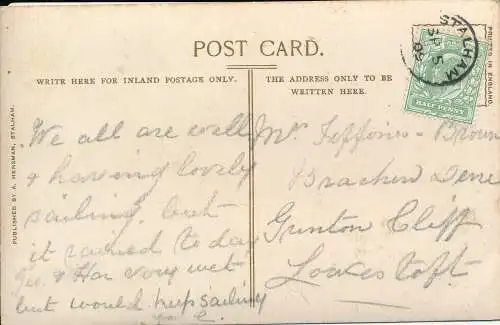 POST CARD.
WRITE HERE FOR INLAND POSTAGE ONLY.
THE ADDRESS ONLY TO BE
WRITTEN HERE.
PRINTED IN ENGLAND
STALHAM
SP 5
HALF PENNY
PUBLISHED BY A. HERSMAN, STALHAM.
We all are well
& having lovely
sailing. but
it rained to day
& very wet
but would keep sailing
Mrs Brown
Bracken Dene
Gunton Cliff
Lowestoft